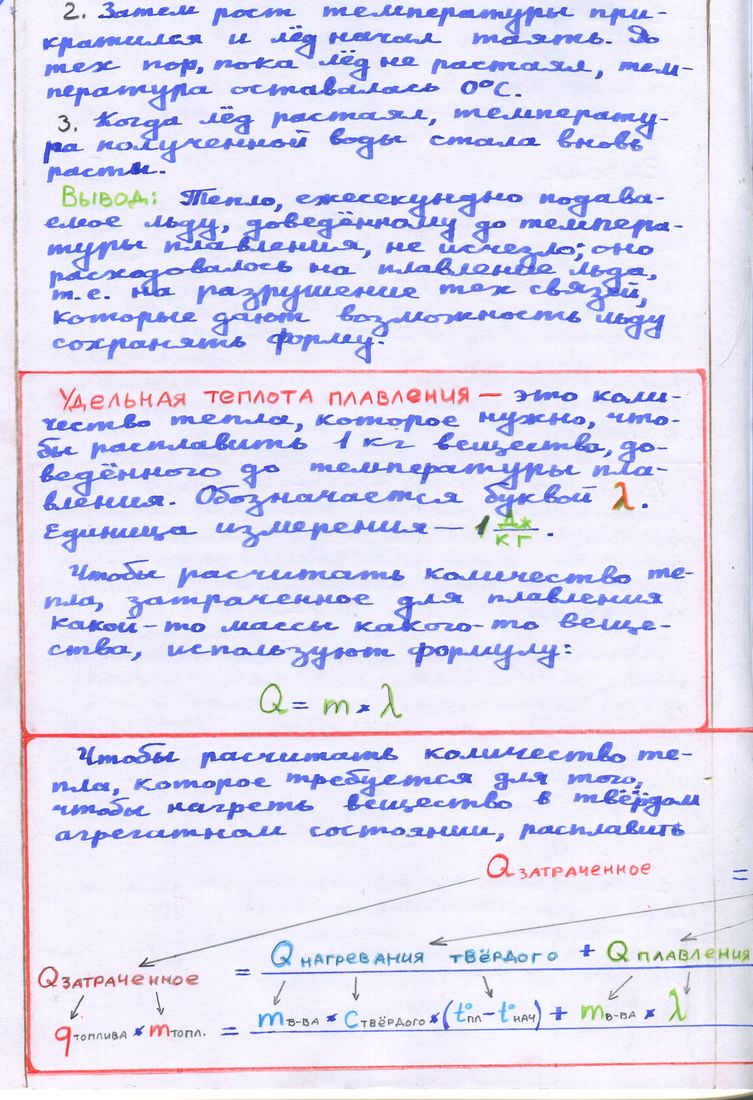 2. Затем рост температуры при-
кратился и лёд начал таять. До
тех пор, пока лёд не растаял, тем-
пература оставалась 0°С.
3. Когда лёд растаял, температу-
ра полученной воды стала вновь
расти.
Вывод: Тепло, ежесекундно подава-
емое льду, доведённому до темпера-
туры плавления, не исчезло; оно
расходовалось на плавление льда,
т.е. на разрушение тех связей,
которые дают возможность льду
сохранять форму.
Удельная теплота плавления — это коли-
чество тепла, которое нужно, что-
бы расплавить 1 кг вещества, до-
ведённого до температуры пла-
вления. Обозначается буквой λ.
Единица измерения — 1 Дж/кг.
Чтобы расчитать количество те-
пла, затраченное для плавления
какой-то массы какого-то веще-
ства, используют формулу:
Q = m * λ
Чтобы расчитать количество те-
пла, которое требуется для того,
чтобы нагреть вещество в твёрдом
агрегатном состоянии, расплавить
Q затраченное =
Q затраченное = Q нагревания твёрдого + Q плавления
q топлива * m топл. = m в-ва * c твёрдого * (t° пл – t° нач) + m в-ва * λ